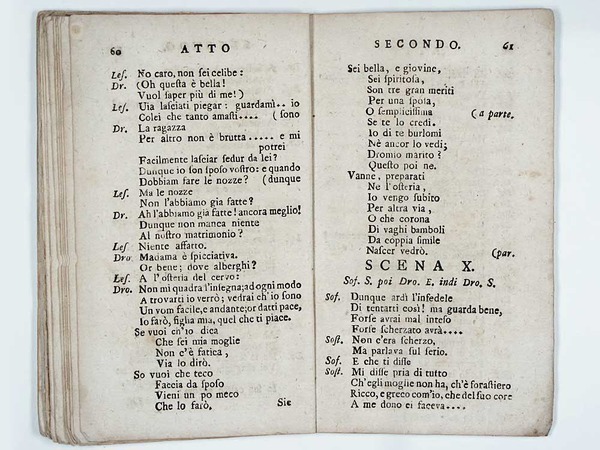 60 ATTO
Leſ. No caro, non ſei celibe:
Dr. (Oh queſta è bella!
Vuol ſaper più di me!)
Leſ. Uia laſciati piegar: guardami.. io
Colei che tanto amaſti.... (ſono
Dr. La ragazza
Per altro non è brutta..... e mi
potrei
Facilmente laſciar ſedur da lei?
Dunque io ſon ſpoſo voſtro: e quando
Dobbiam fare le nozze? (dunque
Leſ. Ma le nozze
Non l'abbiamo gia fatte?
Dr. Ah l'abbiamo gia fatte! ancora meglio!
Dunque non manca niente
Al noſtro matrimonio?
Leſ Niente affatto.
Dro. Madama è ſpicciativa.
Or bene; dove alberghi?
Leſ. A l'oſteria del cervo:
Dro. Non mi quadra l'inſegna; ad ogni modo
A trovarti io verrò; vedrai ch'io ſono
Un vom facile, e andante; or datti pace,
Io farò, figlia mia, quel che ti piace.
Se vuoi ch'io dica
Che ſei mia moglie
Non c'è fatica,
Via lo dirò.
So vuoi che teco
Faccia da ſpoſo
Vieni un po meco
Che lo farò.
Sie
SECONDO. 61
Sei bella, e giovine,
Sei ſpiritoſa,
Son tre gran meriti
Per una ſpoſa,
O ſempliciſſima (a parte.
Se te lo credi.
Io di te burlomi
Nè ancor lo vedi;
Dromio marito?
Queſto poi ne.
Vanne, preparati
Ne l'oſteria,
Io vengo ſubito
Per altra via,
O che corona
Di vaghi bamboli
Da coppia ſimile
Naſcer vedrò. (par.
SCENA X.
Sof. S. poi Dro. E. indi Dro. S.
Sof. Dunque ardì l'infedele
Di tentarti così! ma guarda bene,
Forſe avrai mal inteſo
Forſe ſcherzato avrà....
Soſt. Non c'era ſcherzo,
Ma parlava ſul ſerio.
Sof. E che ti diſſe
Soſt. Mi diſſe pria di tutto
Ch'egli moglie non ha, ch'è foraſtiero
Ricco, e greco com'io, che del ſuo core
A me dono ei faceva....